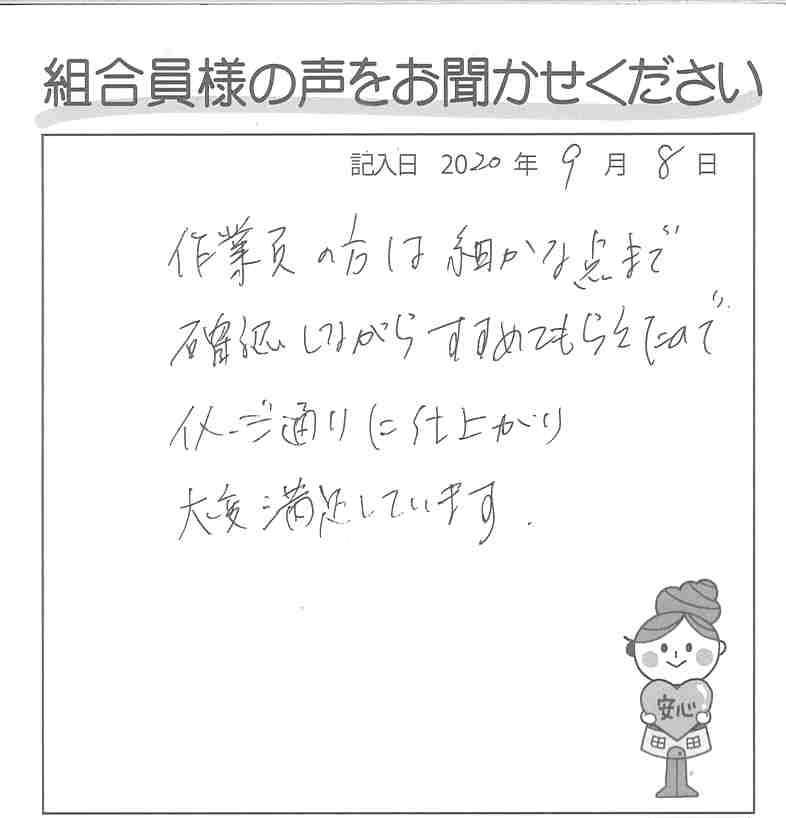 組合員様の声をお聞かせください
記入日 2020 年 9 月 8 日
作業員の方は細かな点まで
確認しながらすすめてもらえたので
イメージ通りに仕上がり
大変満足しています.
安心